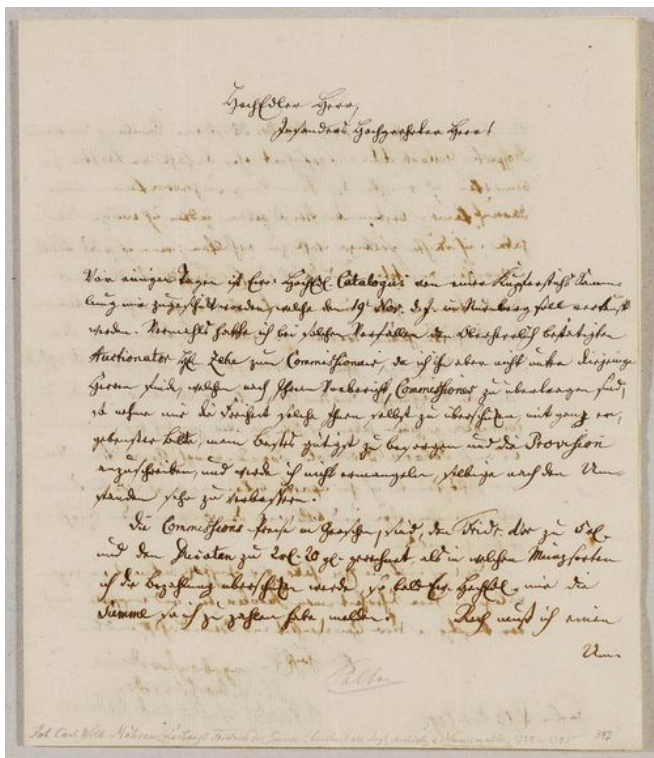 HochEdler Herr,
Insonders Hochgeehrter Herr!
Vor einigen Tagen ist Ewr. HochEdl. Catalogus von einer Kupferstich Samm-
lung mir zugeschickt worden, welche den 19t Nov. d. J. in Nürnberg soll verkauft
werden. Vormahls hatte ich bei solchen Vorfällen den Obrigkeitlich bestätigten
Auctionator Zehe zum Commissionair, da ich ihn aber nicht unter diejenige
Herren finde, welchen nach Ihrem Vorbericht, Commissiones zu übertragen sind,
so nehme mir die Freiheit solche Ihnen selbst zu überschicken, mit ganz er-
gebenster Bitte, mein Bestes gütigst zu besorgen und die Provision
anzuschreiben, und werde ich nicht ermangeln, selbige nach den Um-
ständen sehr zu verbessern.
Die Commissions Preise in Groschen, sind, den Fried. dor zu 5 rl.
und den Ducaten zu 2 rl. 20 gl. gerechnet, als in welchen Münzsorten
ich die Bezahlung überschicken werde, so bald Ewr. HochEdl. mir die
Summe, so ich zu zahlen habe, melden. Noch muß ich einen
Um-
Joh. Carl Wilh. Möhsen, Leibarzt Friedrich des Großen
347